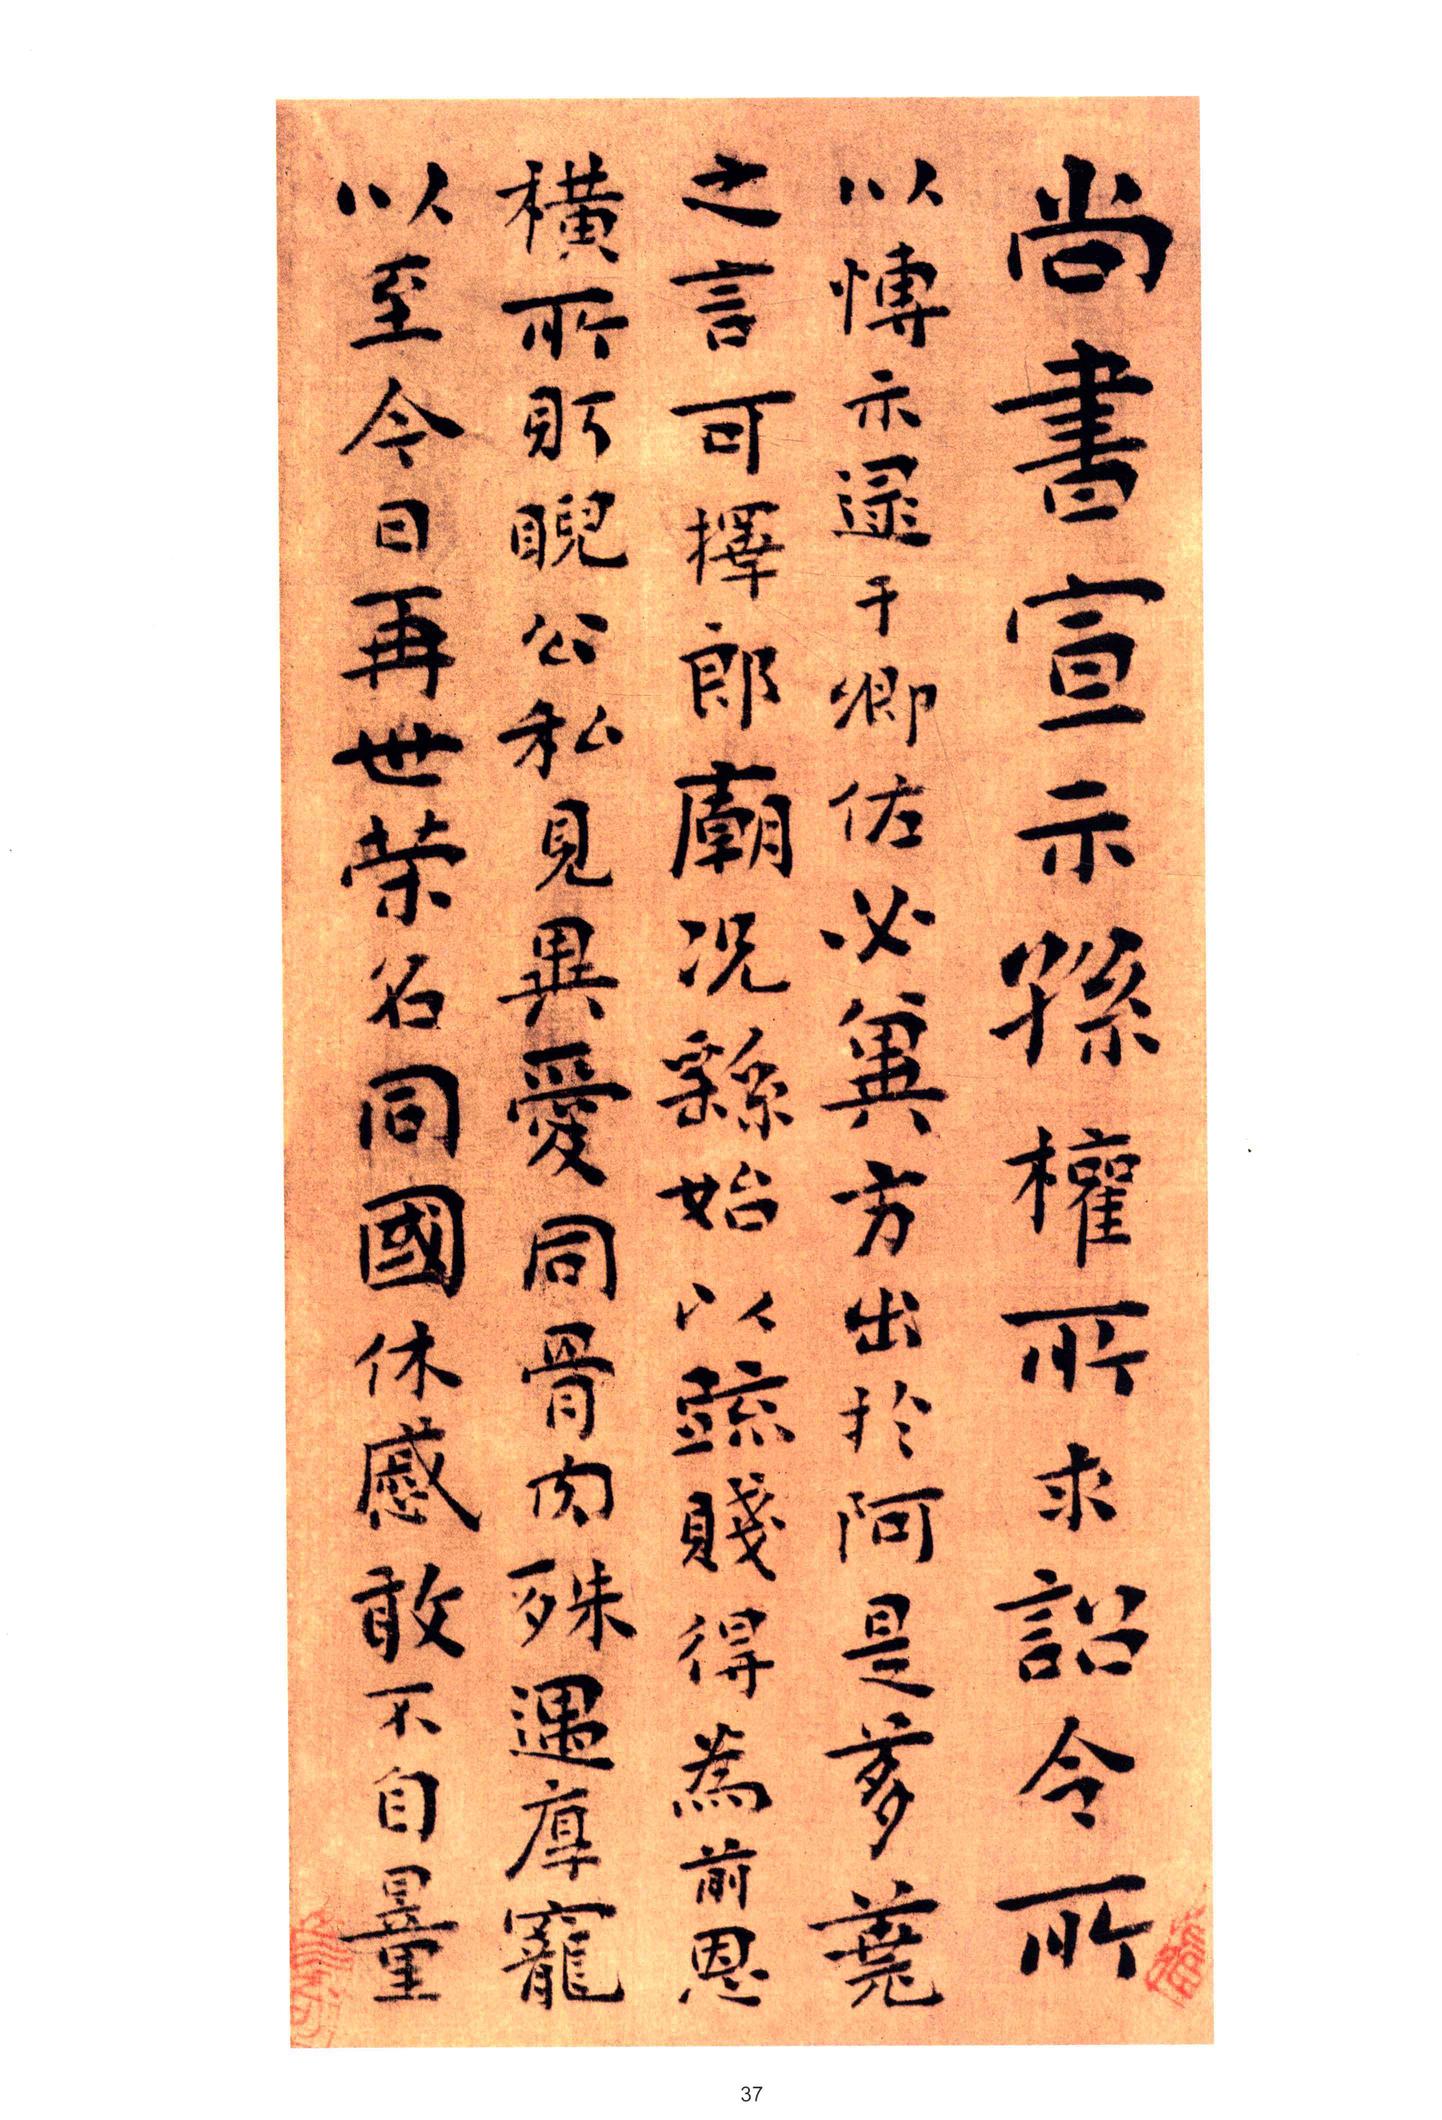 尚書宣示孫權所求詔令所
以慱示逯于卿佐必兾方出於阿是芻蕘
之言可擇郎廟况繇始以疏賤得為前恩
橫所貯睨公私見異愛同骨肉殊遇厚寵
以至今日再世榮名同國休慼敢不自量
37